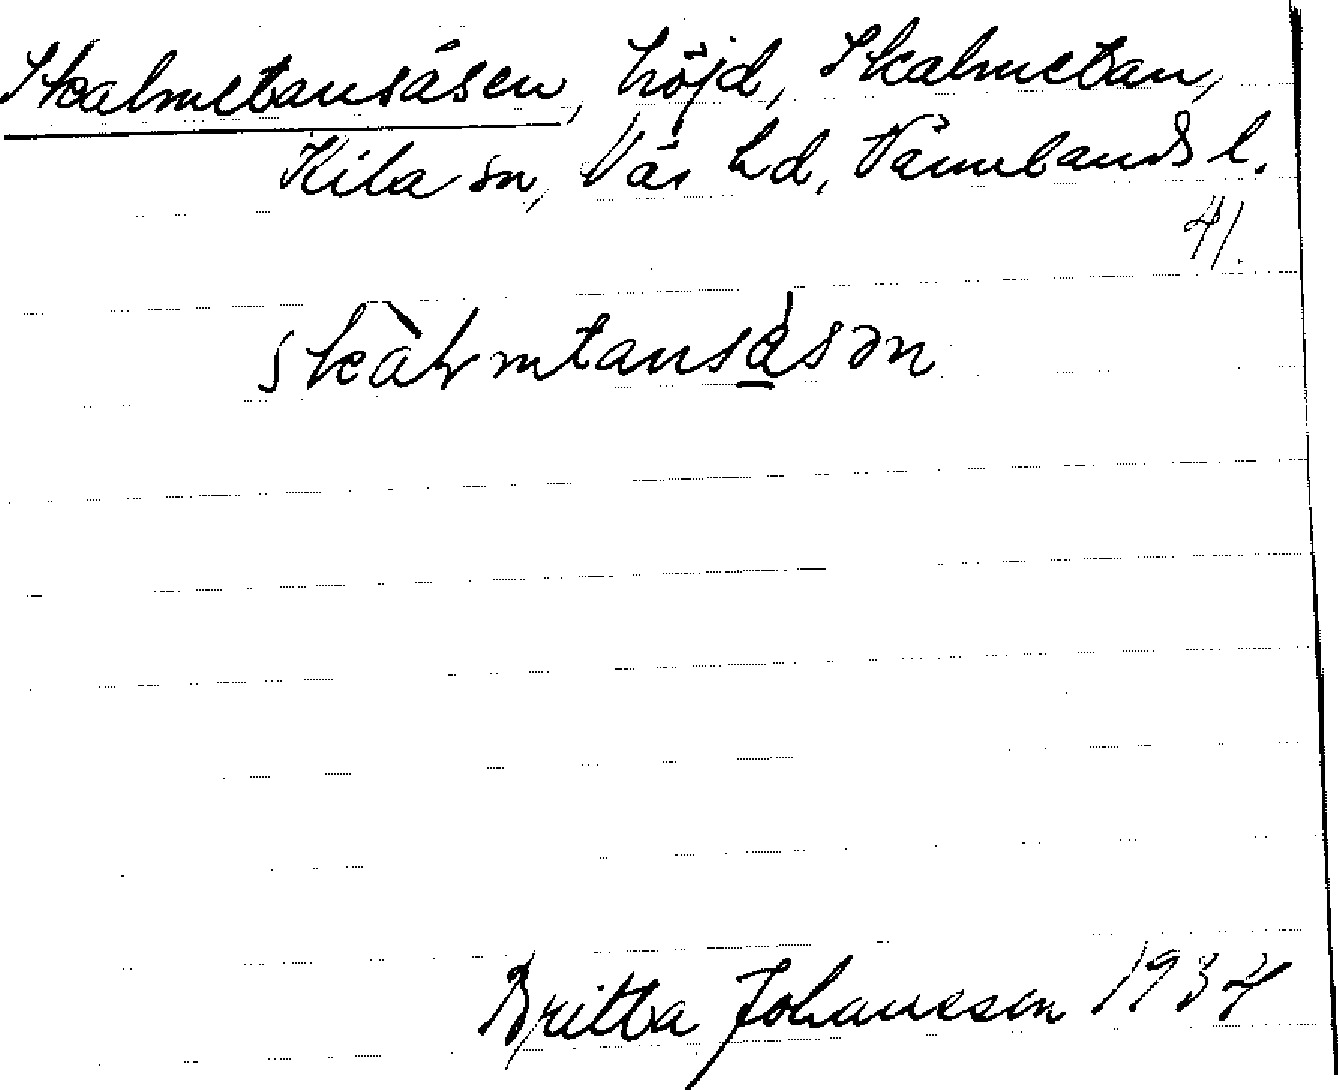 Skalmetansåsen, höjd, Skalmetan,
Kila sn, Näs hd, Värmlands l.
41.
skàlmtansåsən
Britta Johansson 1937